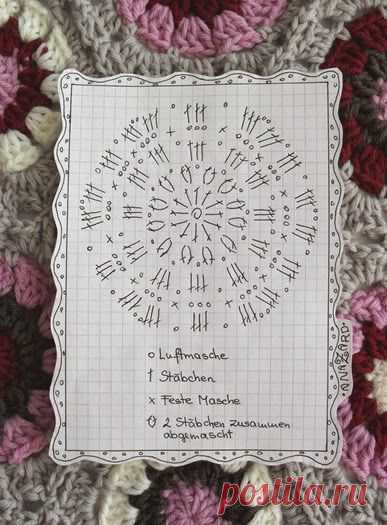 o Luftmasche
† Stäbchen
x Feste Masche
2 Stäbchen zusammen
abgemascht
ANNAZARD
postila.ru